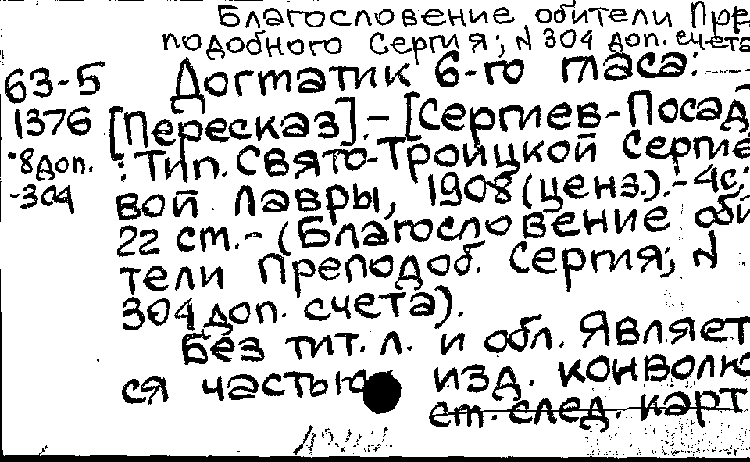 Благословение обители Пре
подобного Сергия; N 304 доп. счета
63-5 Догматик 6-го гласа:
1376 [Пересказ].- [Сергиев-Посад
8доп. : Тип. Свято-Троицкой Сергие
-304 вой лавры, 1908 (ценз.).- 4с;
22 см.- (Благословение оби
тели Преподоб. Сергия; N
304 доп. счета).
Без тит. л. и обл. Являет
ся частью изд. конволю
см. след. карт